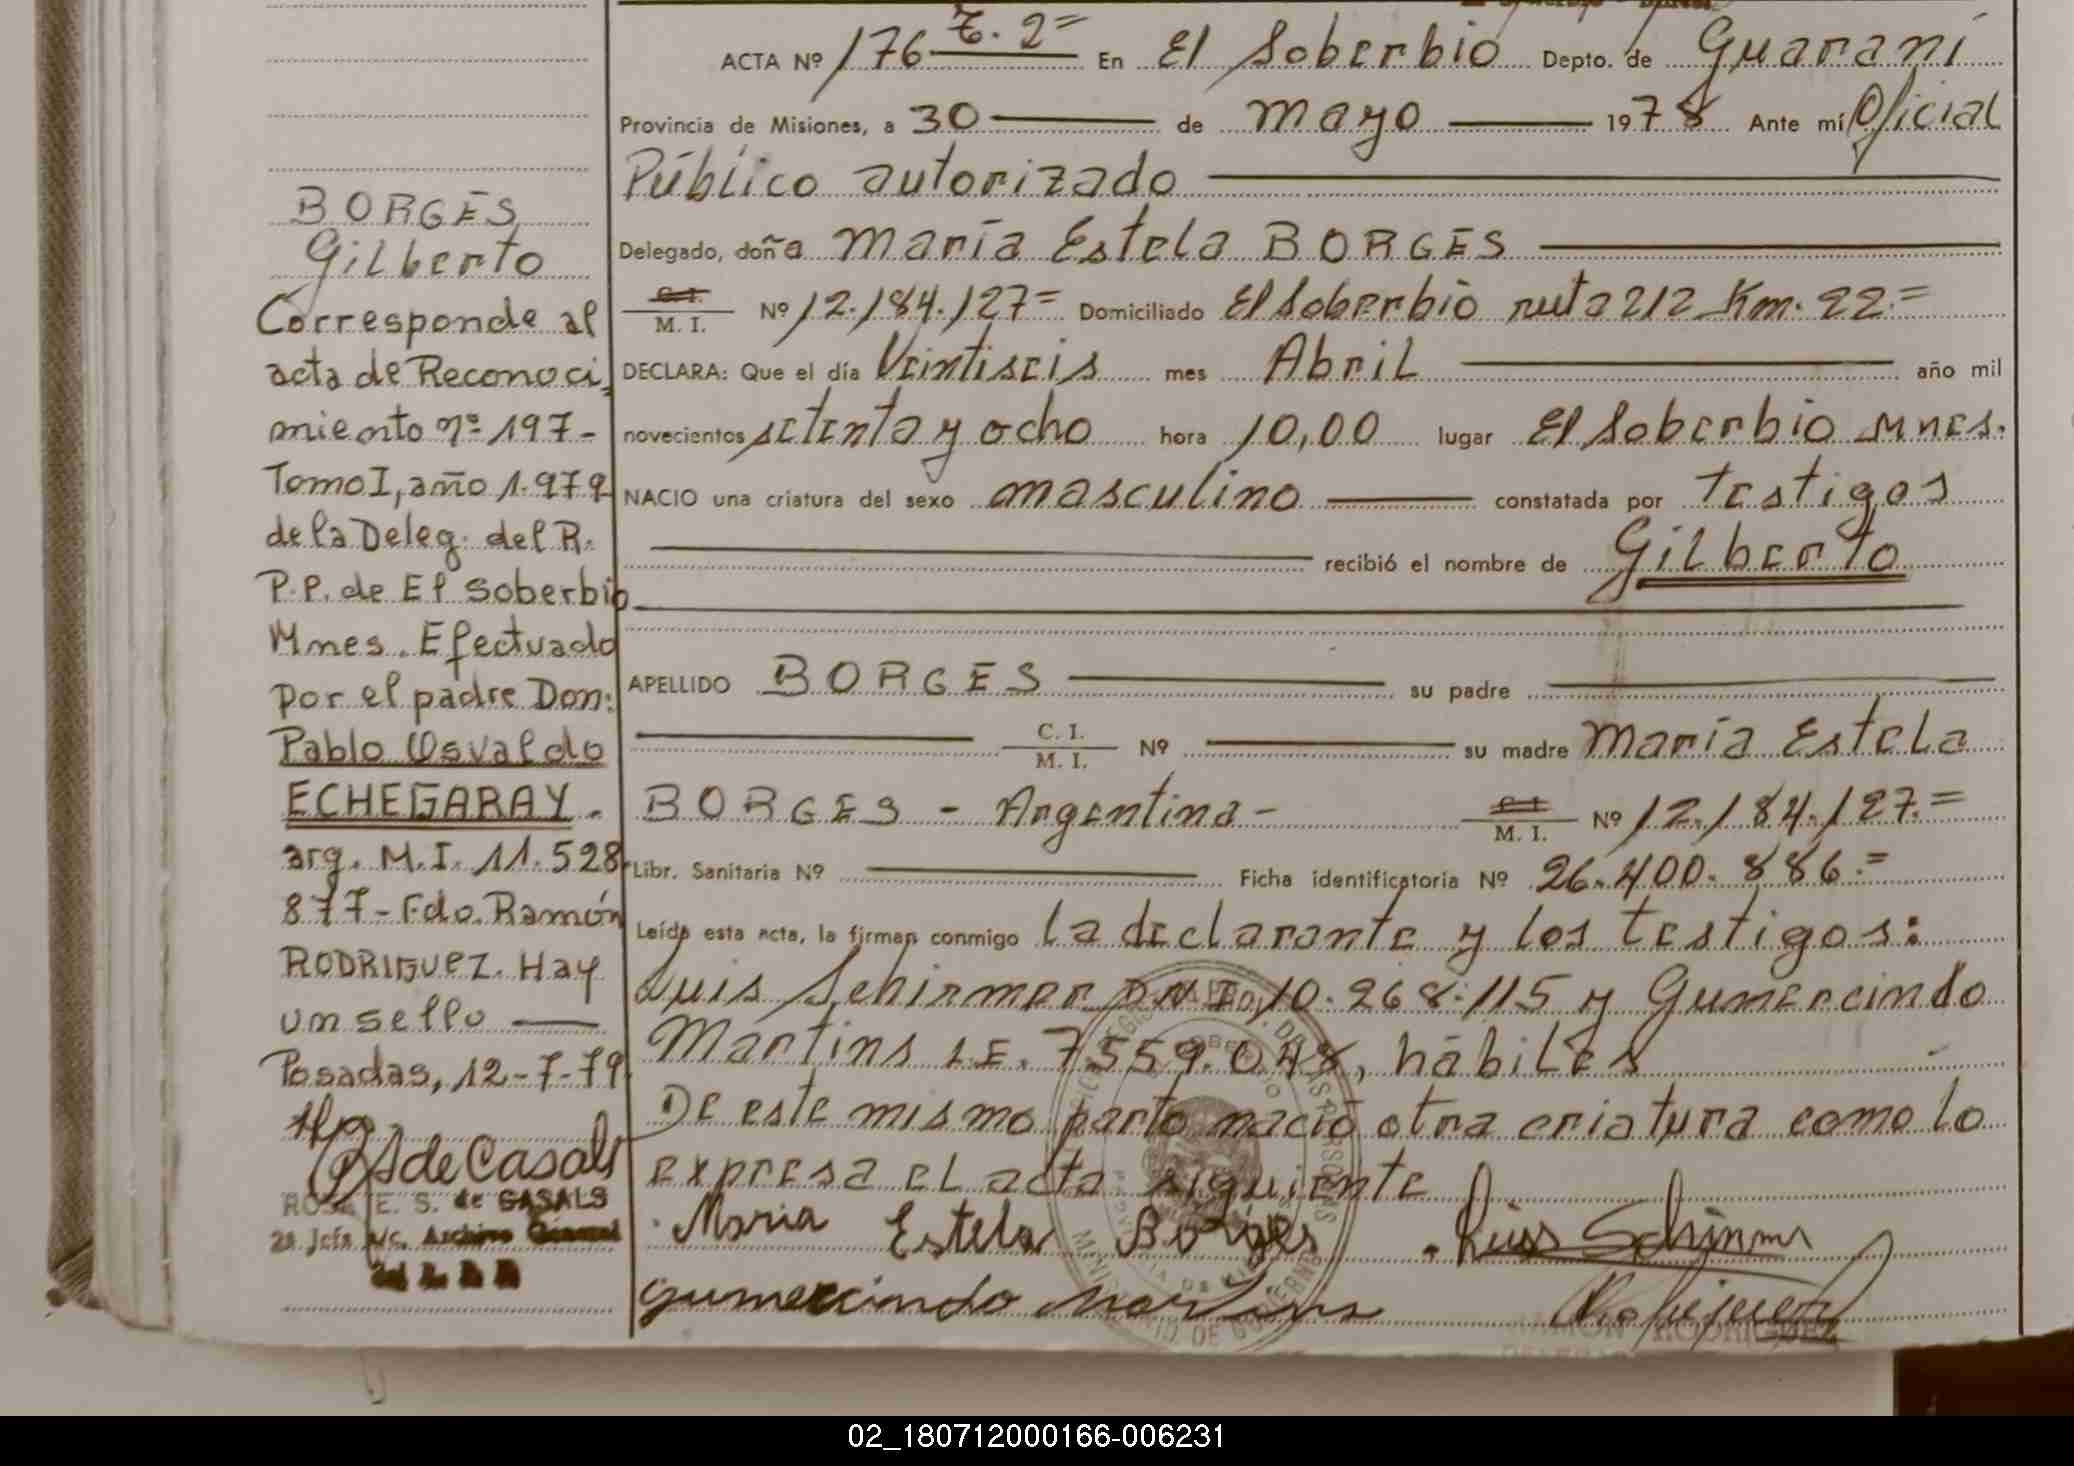 ACTA Nº 176 T. 2= En El Soberbio Depto. de Guaraní
Provincia de Misiones, a 30 de mayo 1978 Ante mí Oficial
Público autorizado
Delegado, doña María Estela BORGES
C.I. M. I. Nº 12.184.127= Domiciliado El Soberbio ruta 212 Km. 22.=
DECLARA: Que el día Veintiseis mes Abril año mil
novecientos setenta y ocho hora 10,00 lugar El Soberbio Mnes.
NACIO una criatura del sexo masculino constatada por testigos
recibió el nombre de Gilberto
APELLIDO BORGES su padre
C. I. M. I. Nº su madre María Estela
BORGES - Argentina - C.I. M. I. Nº 12.184.127.=
Libr. Sanitaria Nº Ficha identificatoria Nº 26.400.886.=
Leída esta acta, la firman conmigo la declarante y los testigos:
Luis Schirmer DNI 10.268.115 y Gumercindo
Martins L.E. 7559.048, hábiles
De este mismo parto nació otra criatura como lo
expresa el acta siguiente
Maria Estela Borges
Gumercindo Martins
RAMON RODRIGUEZ
BORGES
Gilberto
Corresponde al
acta de Reconoci
miento nº 197-
Tomo I, año 1.979
de la Deleg. del R.
P.P. de El Soberbio
Mnes. Efectuado
por el padre Don:
Pablo Osvaldo
ECHEGARAY.
arg. M.I. 11.528
877- Fdo. Ramón
RODRIGUEZ. Hay
un sello
Posadas, 12-7-79
de Casals
ROSA E. S. de CASALS
2a Jefa a/c. Archivo General
02_180712000166-006231